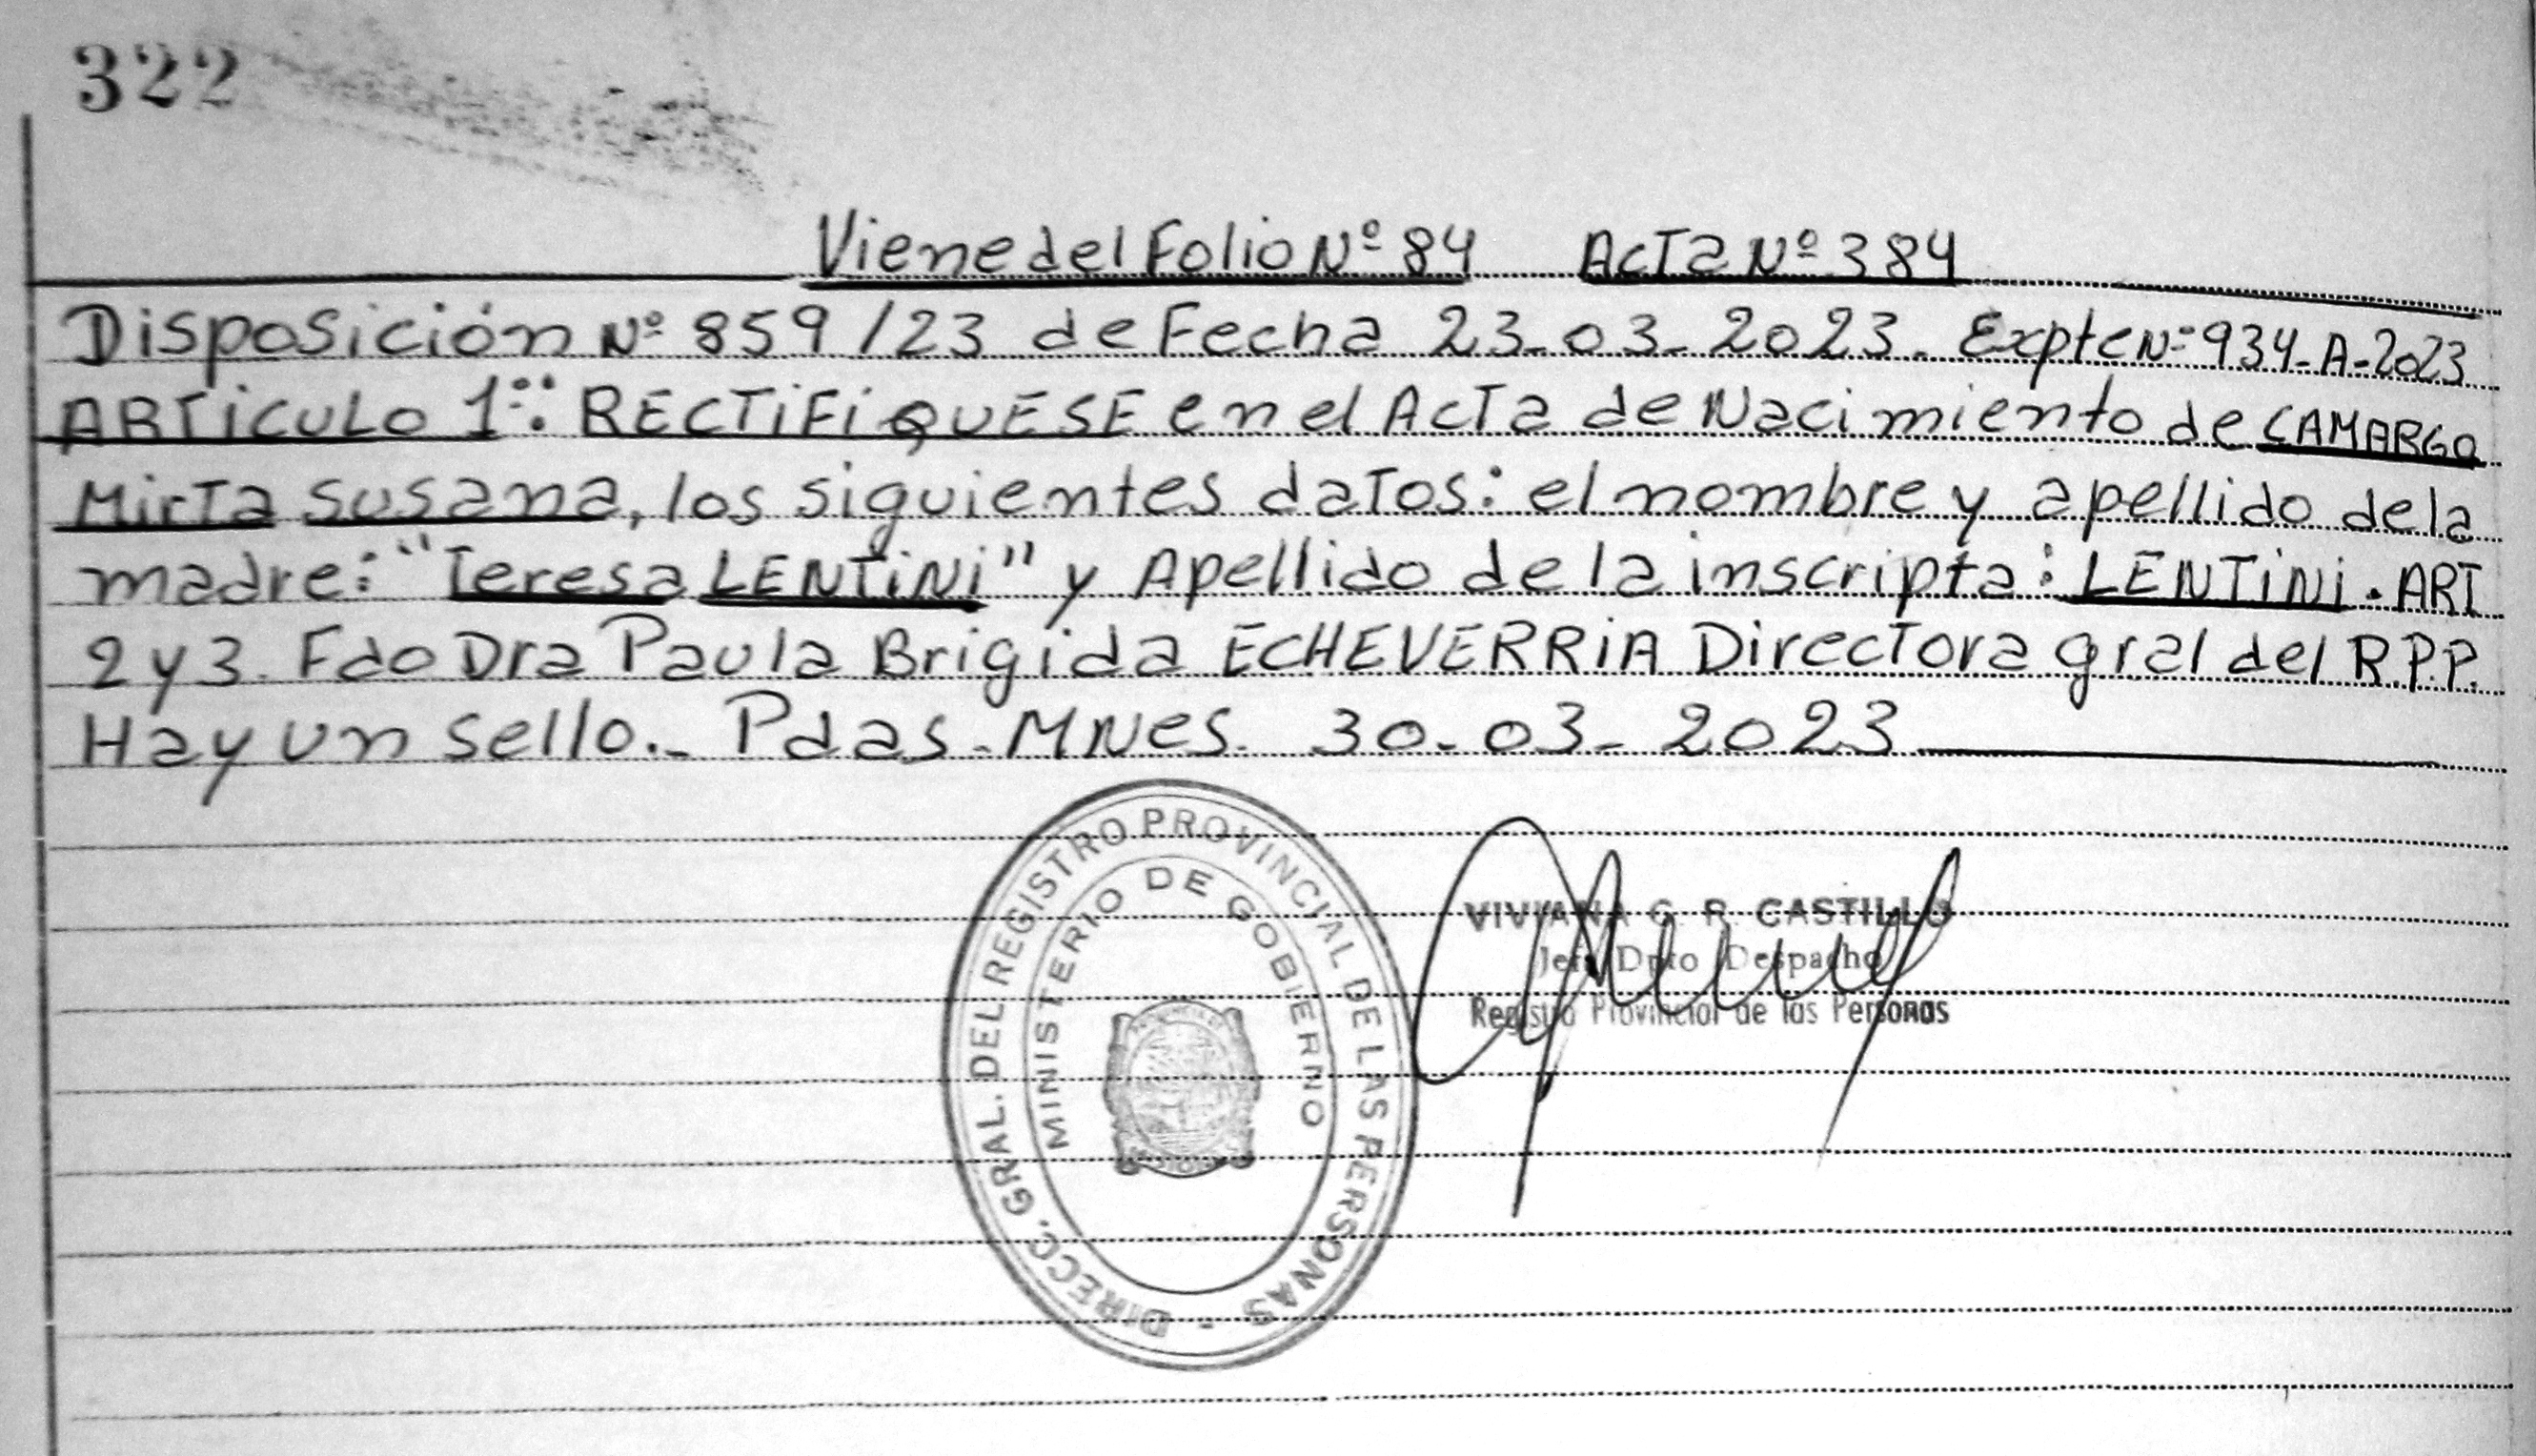 322
Viene del Folio Nº 84 Acta Nº 384
Disposición Nº 859/23 de Fecha 23-03-2023. Expte Nº 934-A-2023
ARTiCULO 1º: RECTiFiQUESE en el Acta de Nacimiento de CAMARGO
Mirta Susana, los siguientes datos: el nombre y apellido de la
madre: "Teresa LENTiNi" y Apellido de la inscripta: LENTiNi. ART
2 y 3. Fdo Dra Paula Brigida ECHEVERRiA Directora gral del R.P.P.
Hay un sello._ Pdas-MNes. 30-03-2023
DIRECC. GRAL. DEL REGISTRO PROVINCIAL DE LAS PERSONAS -
MINISTERIO DE GOBIERNO
VIVIANA G. R. CASTILLO
Jefe Dpto Despacho
Registro Provincial de las Personas